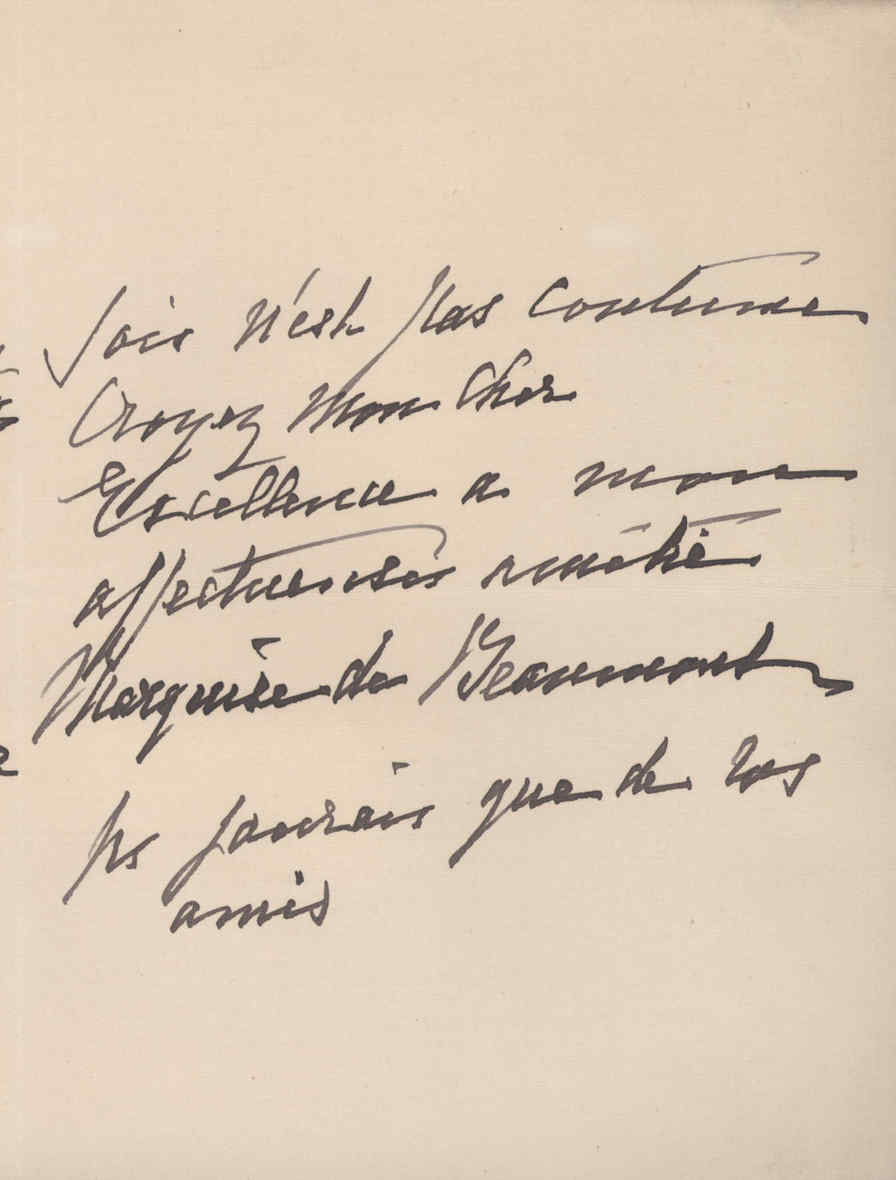 fois n'est pas coutume
Croyez mon cher
Excellence a mon
affectueuse amitié
Marquise de Beaumont
ps j'aurais que de vos
amis